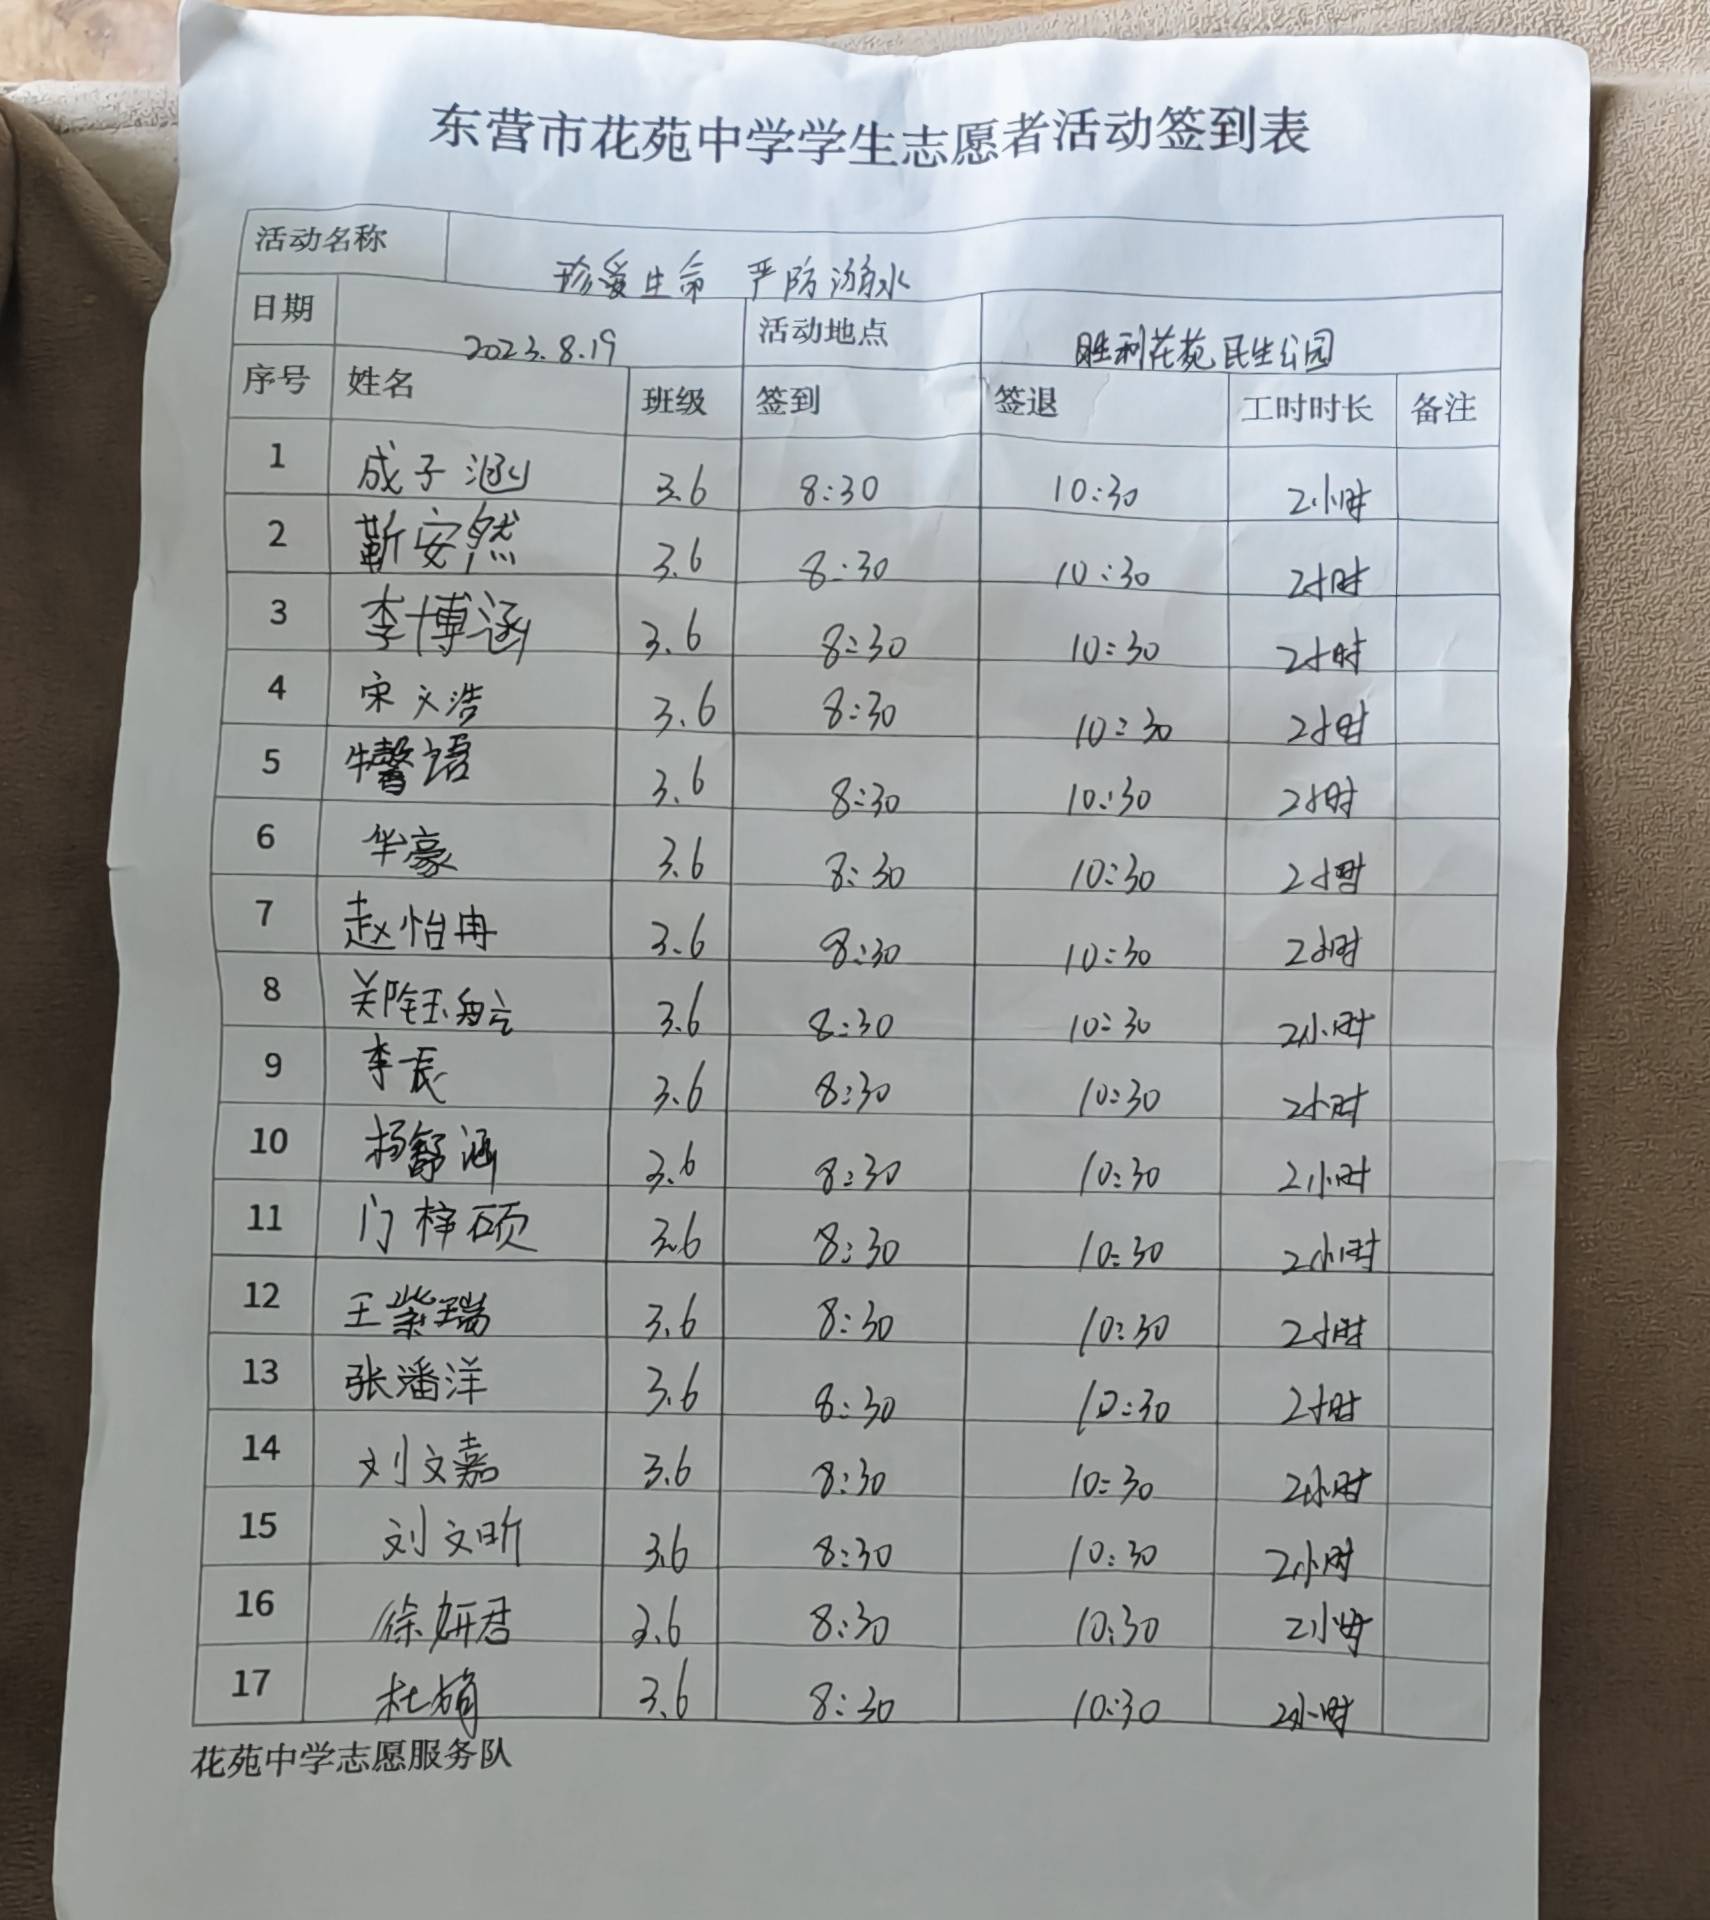 东营市花苑中学学生志愿者活动签到表
活动名称 珍爱生命 严防溺水
日期 2023.8.19 活动地点 胜利花苑民生公园
序号 姓名 班级 签到 签退 工时时长 备注
1 成子涵 3.6 8:30 10:30 2小时
2 靳安然 3.6 8:30 10:30 2小时
3 李博涵 3.6 8:30 10:30 2小时
4 宋文浩 3.6 8:30 10:30 2小时
5 牛馨语 3.6 8:30 10:30 2小时
6 华豪 3.6 8:30 10:30 2小时
7 赵怡冉 3.6 8:30 10:30 2小时
8 3.6 8:30 10:30 2小时
9 李辰 3.6 8:30 10:30 2小时
10 杨舒涵 3.6 8:30 10:30 2小时
11 门梓硕 3.6 8:30 10:30 2小时
12 王紫瑞 3.6 8:30 10:30 2小时
13 张潘洋 3.6 8:30 10:30 2小时
14 刘文嘉 3.6 8:30 10:30 2小时
15 刘文昕 3.6 8:30 10:30 2小时
16 徐妍君 3.6 8:30 10:30 2小时
17 杜娟 3.6 8:30 10:30 2小时
花苑中学志愿服务队